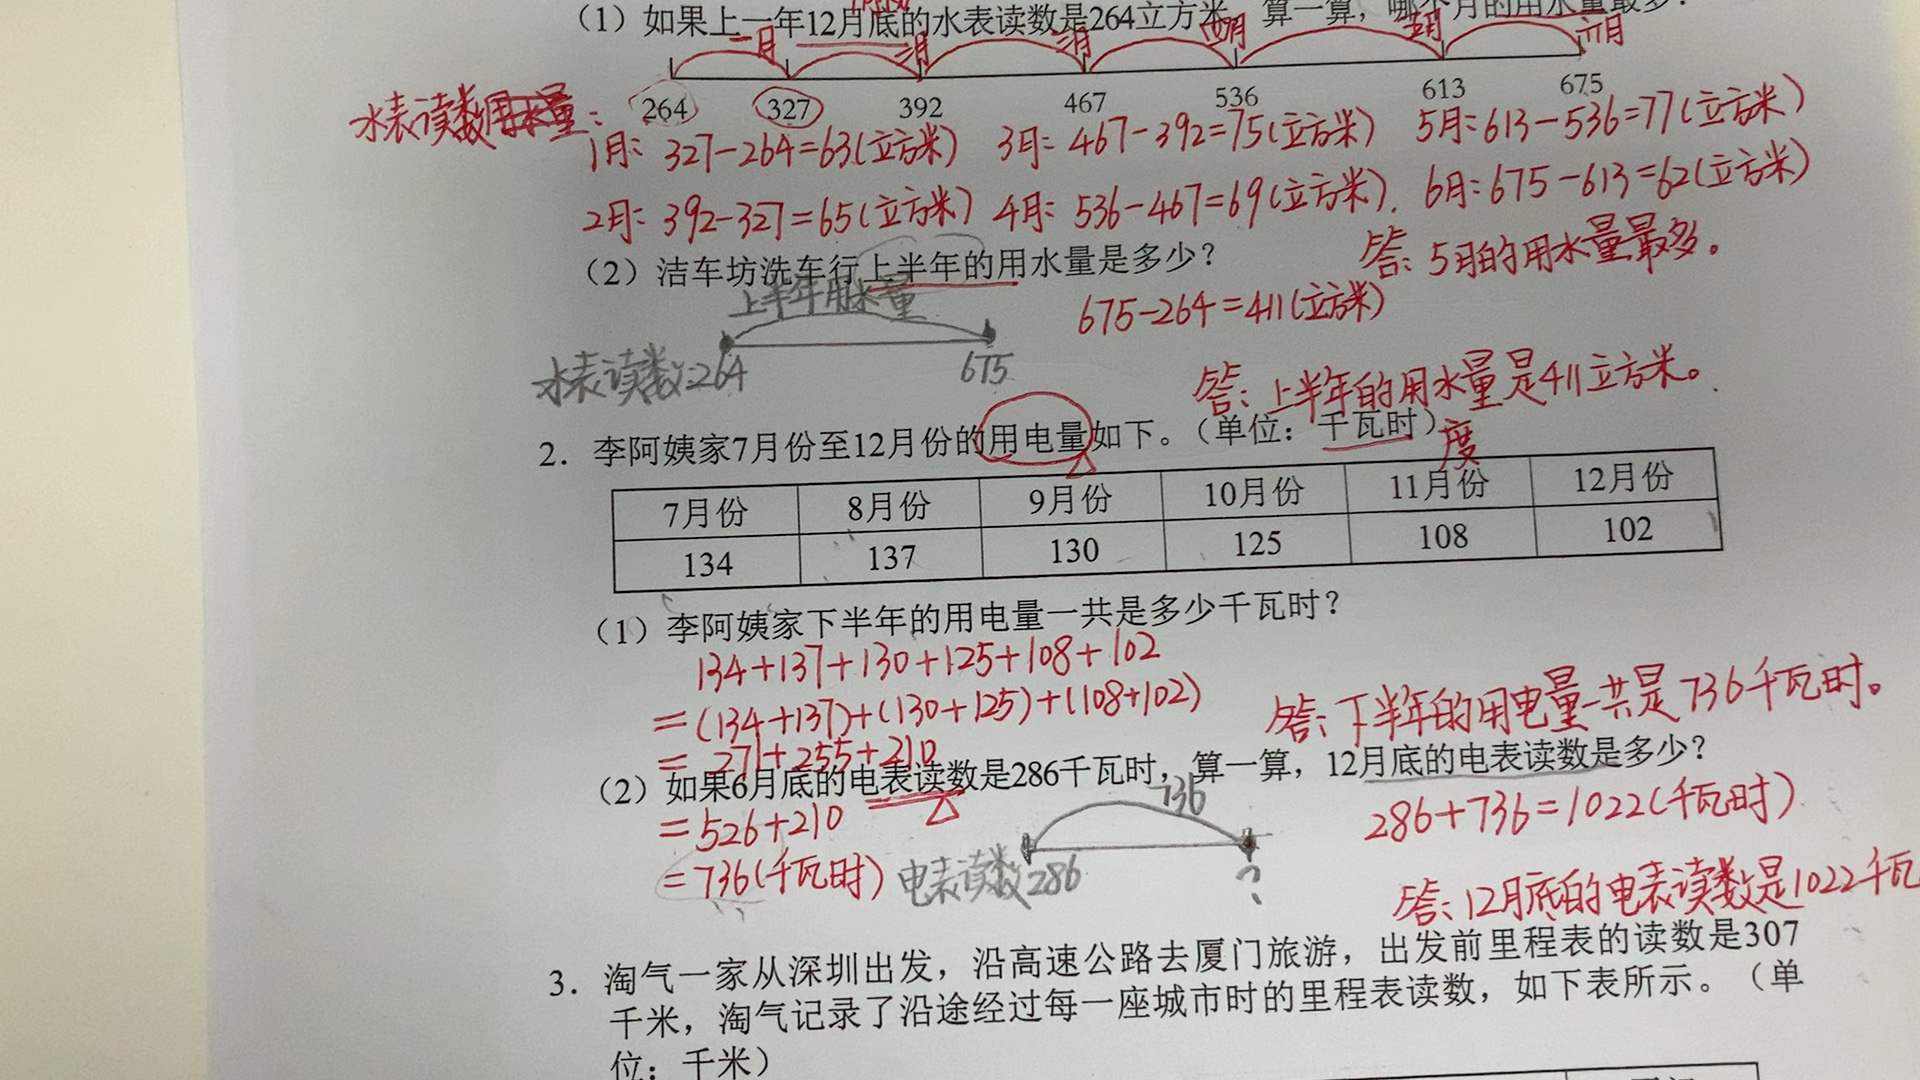 (1)如果上一年12月底的水表读数是264立方米，算一算，哪个月的用水量最多？
一月 二月 三月 四月 五月 六月
264 327 392 467 536 613 675
水表读数：
1月：327-264=63(立方米) 3月：467-392=75(立方米) 5月：613-536=77(立方米)
2月：392-327=65(立方米) 4月：536-467=69(立方米). 6月：675-613=62(立方米)
答：5月的用水量最多。
(2)洁车坊洗车行上半年的用水量是多少？
上半年用水量
675-264=411(立方米)
水表读数：264 675
答：上半年的用水量是411立方米。
2. 李阿姨家7月份至12月份的用电量如下。(单位：千瓦时)
度
7月份 8月份 9月份 10月份 11月份 12月份
134 137 130 125 108 102
(1)李阿姨家下半年的用电量一共是多少千瓦时？
134+137+130+125+108+102
=(134+137)+(130+125)+(108+102)
答：下半年的用电量一共是736千瓦时。
=271+255+210
(2)如果6月底的电表读数是286千瓦时，算一算，12月底的电表读数是多少？
=526+210
736
286+736=1022(千瓦时)
=736(千瓦时)
电表读数286 ？
答：12月底的电表读数是1022千瓦
3. 淘气一家从深圳出发，沿高速公路去厦门旅游，出发前里程表的读数是307
千米，淘气记录了沿途经过每一座城市时的里程表读数，如下表所示。(单
位：千米)